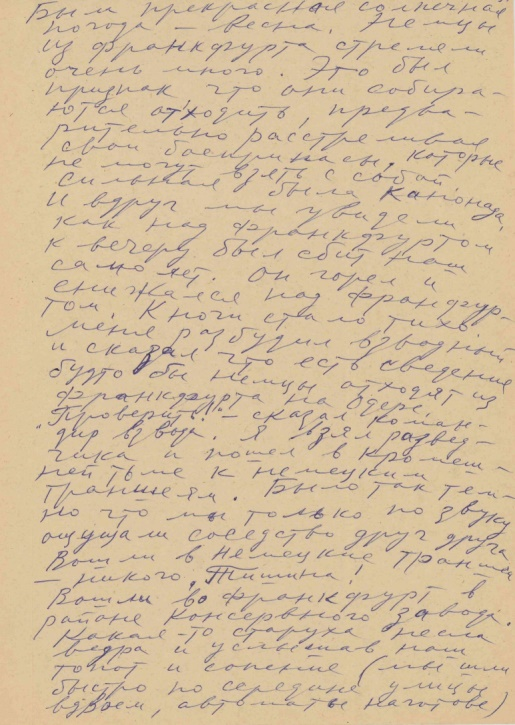 Была прекрасная солнечная
погода – весна. Немцы
из Франкфурта стреляли
очень много. Это был
признак что они собира-
ются отходить, предва-
рительно расстреливая
свои боеприпасы, которые
не могут взять с собой.
Сильная была канонада,
И вдруг мы увидели
как над Франкфуртом
к вечеру был сбит наш
самолёт. Он горел и
снижался над Франкфур-
том. К ночи стало тихо.
меня разбудил взводный
и сказал что есть сведение
будто бы немцы отходят из
Франкфурта на Одере.
"Проверить!" – сказал коман-
дир взвода. Я взял развед-
чика и пошел в кромеш-
ней тьме к немецким
траншеям. Было так тем-
но что мы только по звуку
ощущали соседство друг друга
Вошли в немецкие траншеи
– никого. Тишина!
Вошли во Франкфурт в
районе Консервного завода.
Какая-то старуха несла
ведра и услышав наш
топот и сопение (мы шли
быстро по середине улицы
вдвоем, автоматы наготове)